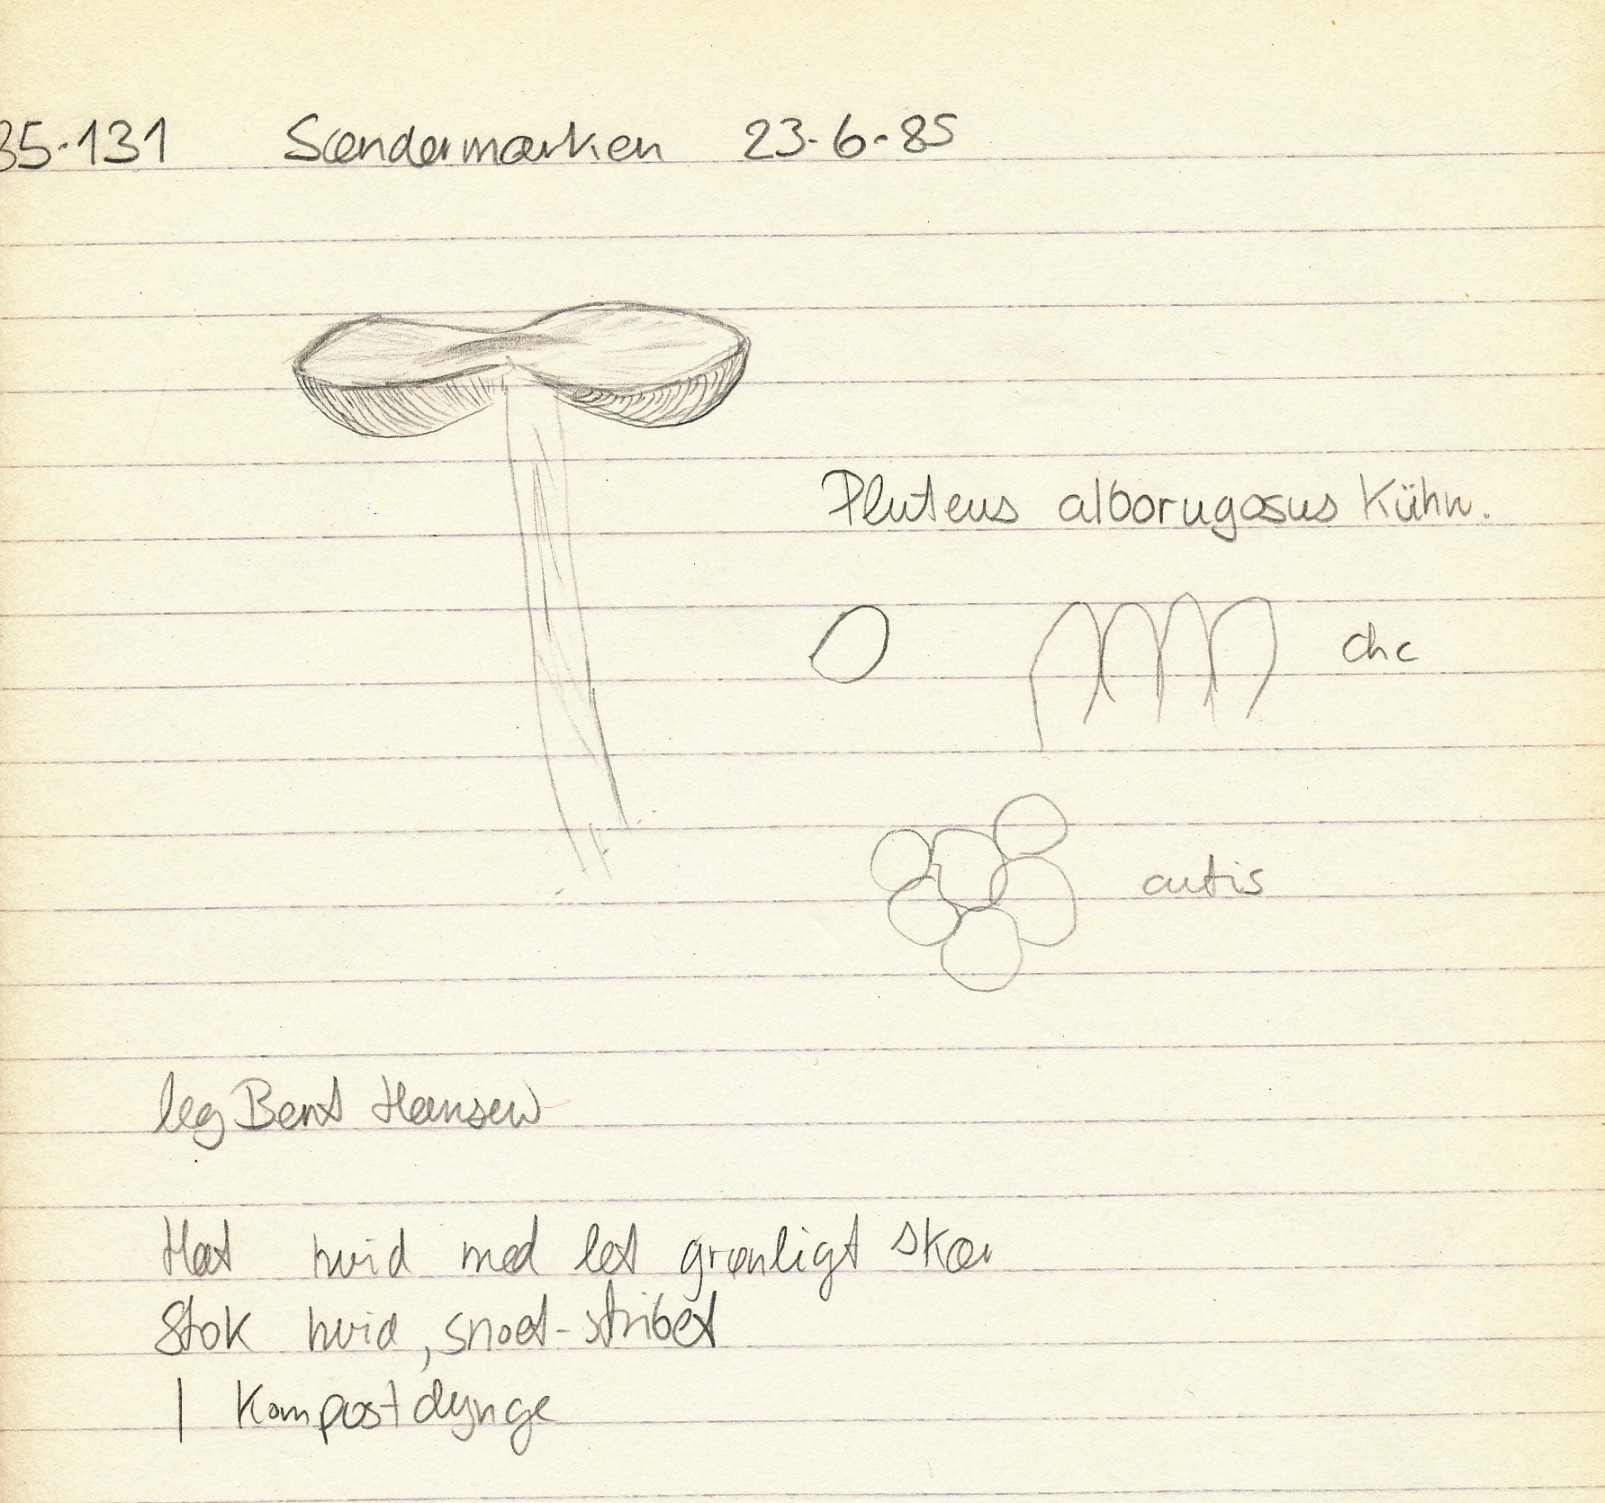 85-131 Søndermarken 23-6-85
Pluteus alborugosus Kühn.
chc
cutis
leg Bent Hansen
Hat hvid med let grønligt skær
Stok hvid, snoet-stribet
I Kompostdynge